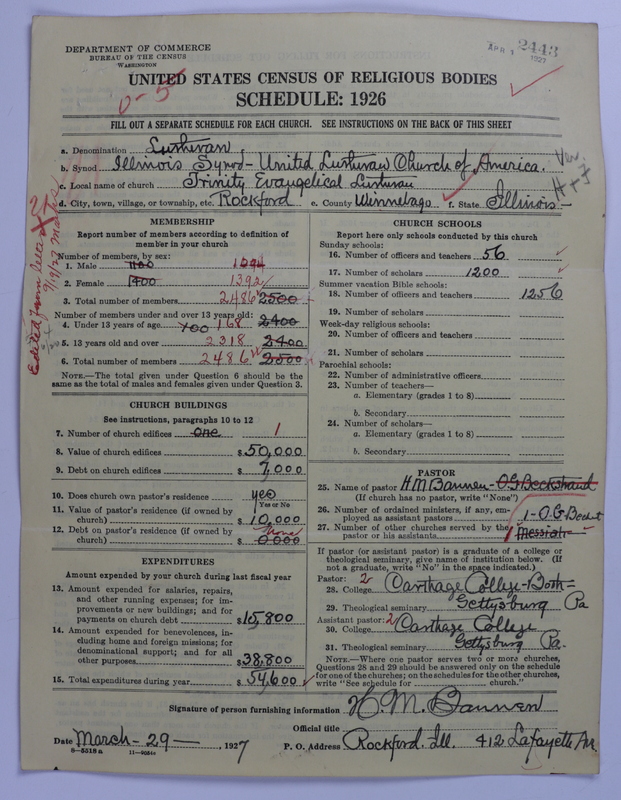 DEPARTMENT OF COMMERCE
BUREAU OF THE CENSUS
WASHINGTON
APR 1 1927
2443
UNITED STATES CENSUS OF RELIGIOUS BODIES
0-5
SCHEDULE: 1926
FILL OUT A SEPARATE SCHEDULE FOR EACH CHURCH. SEE INSTRUCTIONS ON THE BACK OF THIS SHEET
a. Denomination Lutheran
b. Synod Illinois Synod - United Lutheran Church of America.
c. Local name of church Trinity Evangelical Lutheran
d. City, town, village, or township, etc. Rockford e. County Winnebago f. State Illinois
Edited from letter 9/19/27
MEMBERSHIP
Report number of members according to definition of
member in your church
Number of members, by sex:
1. Male 1100 1094
2. Female 1400 1392
3. Total number of members 2486 2500
Number of members under and over 13 years old:
4. Under 13 years of age 100 168 2400
5. 13 years old and over 2318 2400
6. Total number of members 2486 2500
NOTE.—The total given under Question 6 should be the
same as the total of males and females given under Question 3.
CHURCH BUILDINGS
See instructions, paragraphs 10 to 12
7. Number of church edifices one 1
8. Value of church edifices $50,000
9. Debt on church edifices $7,000
10. Does church own pastor's residence yes
Yes or No
11. Value of pastor's residence (if owned by
church) $10,000
12. Debt on pastor's residence (if owned by
church) $0,000 None
EXPENDITURES
Amount expended by your church during last fiscal year
13. Amount expended for salaries, repairs,
and other running expenses; for im-
provements or new buildings; and for
payments on church debt $15,800
14. Amount expended for benevolences, in-
cluding home and foreign missions; for
denominational support; and for all
other purposes $38,800
15. Total expenditures during year $54,600
CHURCH SCHOOLS
Report here only schools conducted by this church
Sunday schools:
16. Number of officers and teachers 56
17. Number of scholars 1200
Summer vacation Bible schools:
18. Number of officers and teachers 1256
19. Number of scholars
Week-day religious schools:
20. Number of officers and teachers
21. Number of scholars
Parochial schools:
22. Number of administrative officers
23. Number of teachers—
a. Elementary (grades 1 to 8)
b. Secondary
24. Number of scholars—
a. Elementary (grades 1 to 8)
b. Secondary
PASTOR
25. Name of pastor H M Bannen - O G Beckstrand
(If church has no pastor, write "None")
26. Number of ordained ministers, if any, em-
ployed as assistant pastors 1 - O. G Beckst
27. Number of other churches served by the
pastor or his assistants 1 Messiah
If pastor (or assistant pastor) is a graduate of a college or
theological seminary, give name of institution below. (If
not a graduate, write "No" in the space indicated.)
Pastor: 2
28. College Carthage College - Both -
29. Theological seminary Gettysburg Pa
Assistant pastor: 2
30. College Carthage College
31. Theological seminary Gettysburg Pa.
NOTE.—Where one pastor serves two or more churches,
Questions 28 and 29 should be answered only on the schedule
for one of the churches; on the schedules for the other churches,
write "See schedule for church."
Signature of person furnishing information H. M. Bannen
Official title
Date March - 29 —, 1927 P. O. Address Rockford. Ill. 412 Lafayette Av.
8-5518a 11-9034a